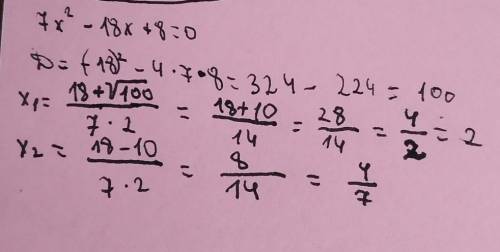 7x² - 18x + 8 = 0
D = (-18)² - 4 · 7 · 8 = 324 - 224 = 100
x₁ = (18+√100)/(7·2) = (18+10)/14 = 28/14 = 4/2 = 2
x₂ = (18-10)/(7·2) = 8/14 = 4/7